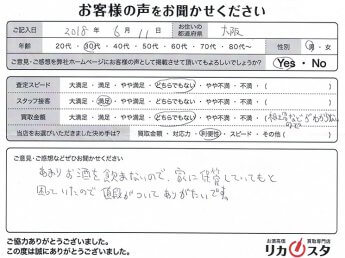 お客様の声をお聞かせください
ご記入日 2018年 6月 11日 お住いの都道府県 大阪
年齢 20代・30代・40代・50代・60代・70代・80代~ 性別 男・女
ご意見・ご感想を弊社ホームページにお客様の声として掲載させて頂いてもよろしいでしょうか? Yes・No
査定スピード 大満足・満足・やや満足・どちらでもない・やや不満・不満・( )
スタッフ接客 大満足・満足・やや満足・どちらでもない・やや不満・不満・( )
買取金額 大満足・満足・やや満足・どちらでもない・やや不満・不満・(
当店をお選びいただきました決め手は? 買取金額・対応力・利便性・スピード・その他( )
ご意見・ご感想などぜひお聞かせください
あまりお酒を飲まないので、家に保管していてもと
困っていたので値段がついてありがたいです。
ご協力ありがとうございました。
この度は誠にありがとうございました。
お酒高価買取専門店
リカスタ